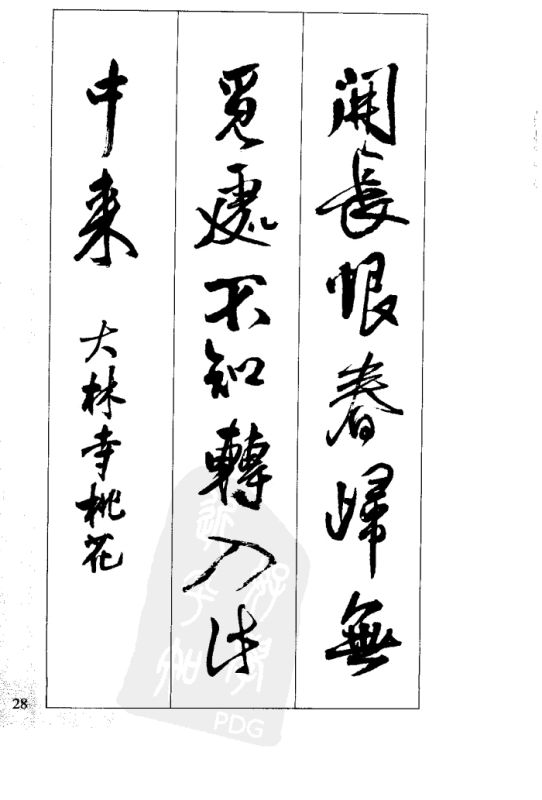 開長恨春歸無
覓處不知轉入此
中来
大林寺桃花
28
PDG